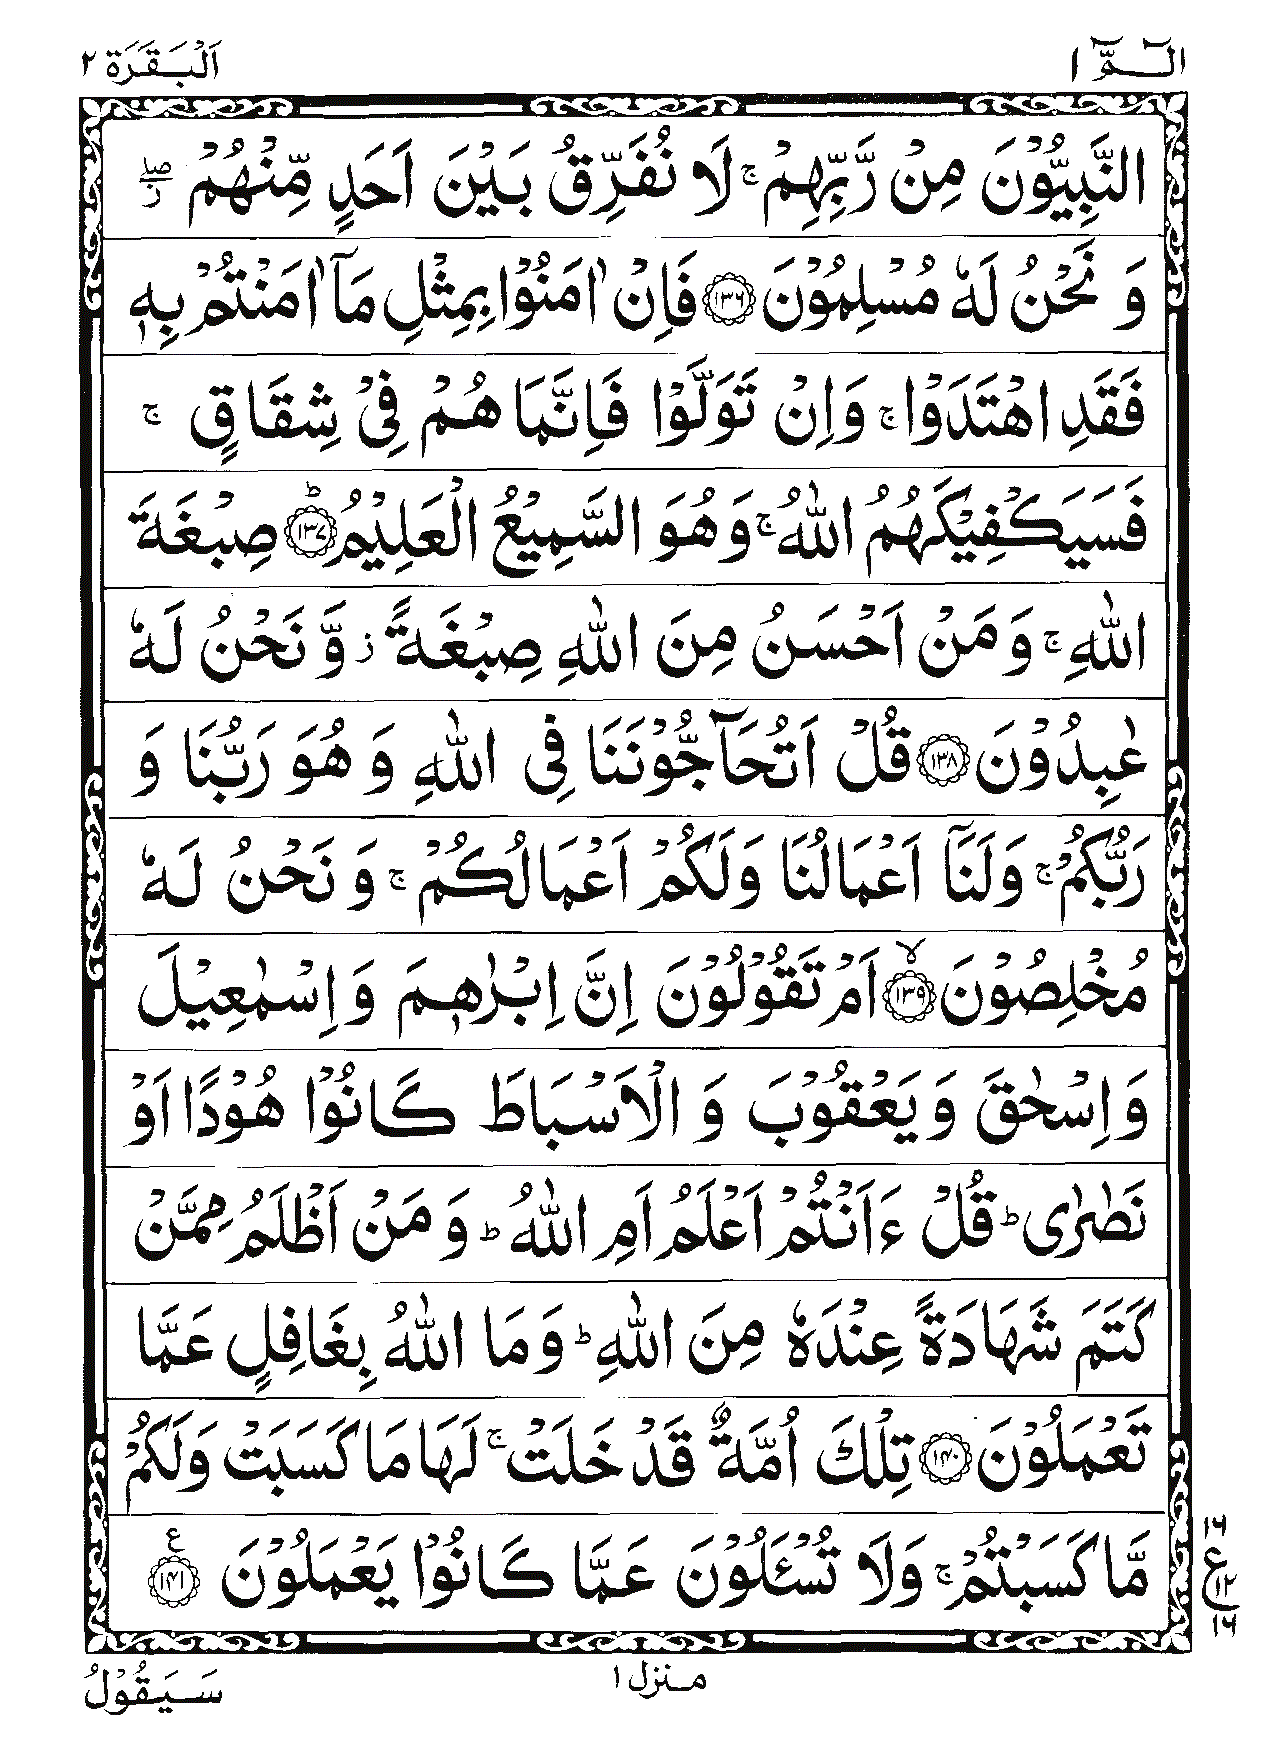 الٓـمّٓ ١
اَلْبَقَرَة ٢
النَّبِيُّوْنَ مِنْ رَّبِّهِمْ ۚ لَا نُفَرِّقُ بَيْنَ اَحَدٍ مِّنْهُمْ ۖز
وَ نَحْنُ لَهٗ مُسْلِمُوْنَ ﴿١٣٦﴾ فَاِنْ اٰمَنُوْا بِمِثْلِ مَاۤ اٰمَنْتُمْ بِهٖ
فَقَدِ اهْتَدَوْا ۚ وَاِنْ تَوَلَّوْا فَاِنَّمَا هُمْ فِيْ شِقَاقٍ ۚ
فَسَيَكْفِيْكَهُمُ اللّٰهُ ۚ وَ هُوَ السَّمِيْعُ الْعَلِيْمُ ؕ﴿١٣٧﴾ صِبْغَةَ
اللّٰهِ ۚ وَ مَنْ اَحْسَنُ مِنَ اللّٰهِ صِبْغَةً ز وَّ نَحْنُ لَهٗ
عٰبِدُوْنَ ﴿١٣٨﴾ قُلْ اَتُحَآجُّوْنَنَا فِى اللّٰهِ وَ هُوَ رَبُّنَا وَ
رَبُّكُمْ ۚ وَلَنَاۤ اَعْمَالُنَا وَلَكُمْ اَعْمَالُكُمْ ۚ وَ نَحْنُ لَهٗ
مُخْلِصُوْنَ ۙ﴿١٣٩﴾ اَمْ تَقُوْلُوْنَ اِنَّ اِبْرٰهٖمَ وَ اِسْمٰعِيْلَ
وَ اِسْحٰقَ وَ يَعْقُوْبَ وَ الْاَسْبَاطَ كَانُوْا هُوْدًا اَوْ
نَصٰرٰى ؕ قُلْ ءَاَنْتُمْ اَعْلَمُ اَمِ اللّٰهُ ؕ وَ مَنْ اَظْلَمُ مِمَّنْ
كَتَمَ شَهَادَةً عِنْدَهٗ مِنَ اللّٰهِ ؕ وَ مَا اللّٰهُ بِغَافِلٍ عَمَّا
تَعْمَلُوْنَ ﴿١٤٠﴾ تِلْكَ اُمَّةٌ قَدْ خَلَتْ ۚ لَهَا مَا كَسَبَتْ وَلَكُمْ
مَّا كَسَبْتُمْ ۚ وَلَا تُسْـَٔلُوْنَ عَمَّا كَانُوْا يَعْمَلُوْنَ ﴿١٤١﴾ ع
١٦
ع ١٢
١٦
منزل ١
سَيَقُوْلُ